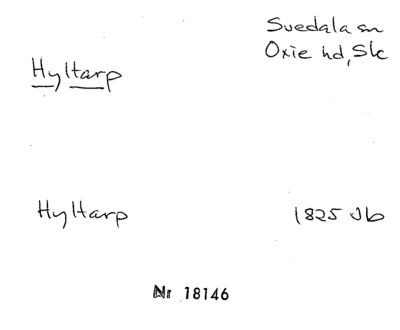 Svedala sn
Oxie hd, Sk
Hyltarp
Hyltarp
1825 Jb
Nr 18146